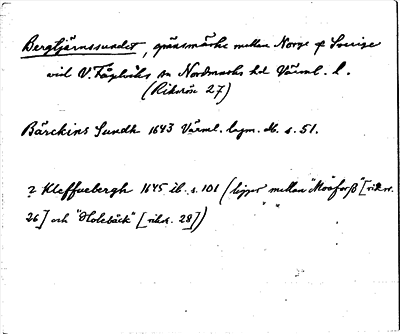 Bergtjärnssundet, gränsmärke mellan Norge o Sverige
vid V. Fågelviks sn Nordmarks hd Värml. l.
(Riksröse 27)
Bärckins Sundh 1643 Värml. lagm. db. s. 51.
? Kleffwebergh 1645 ib. s. 101 (ligger mellan "Moåforß" [riksr.
26] och "Holebäck" [riksr. 28])